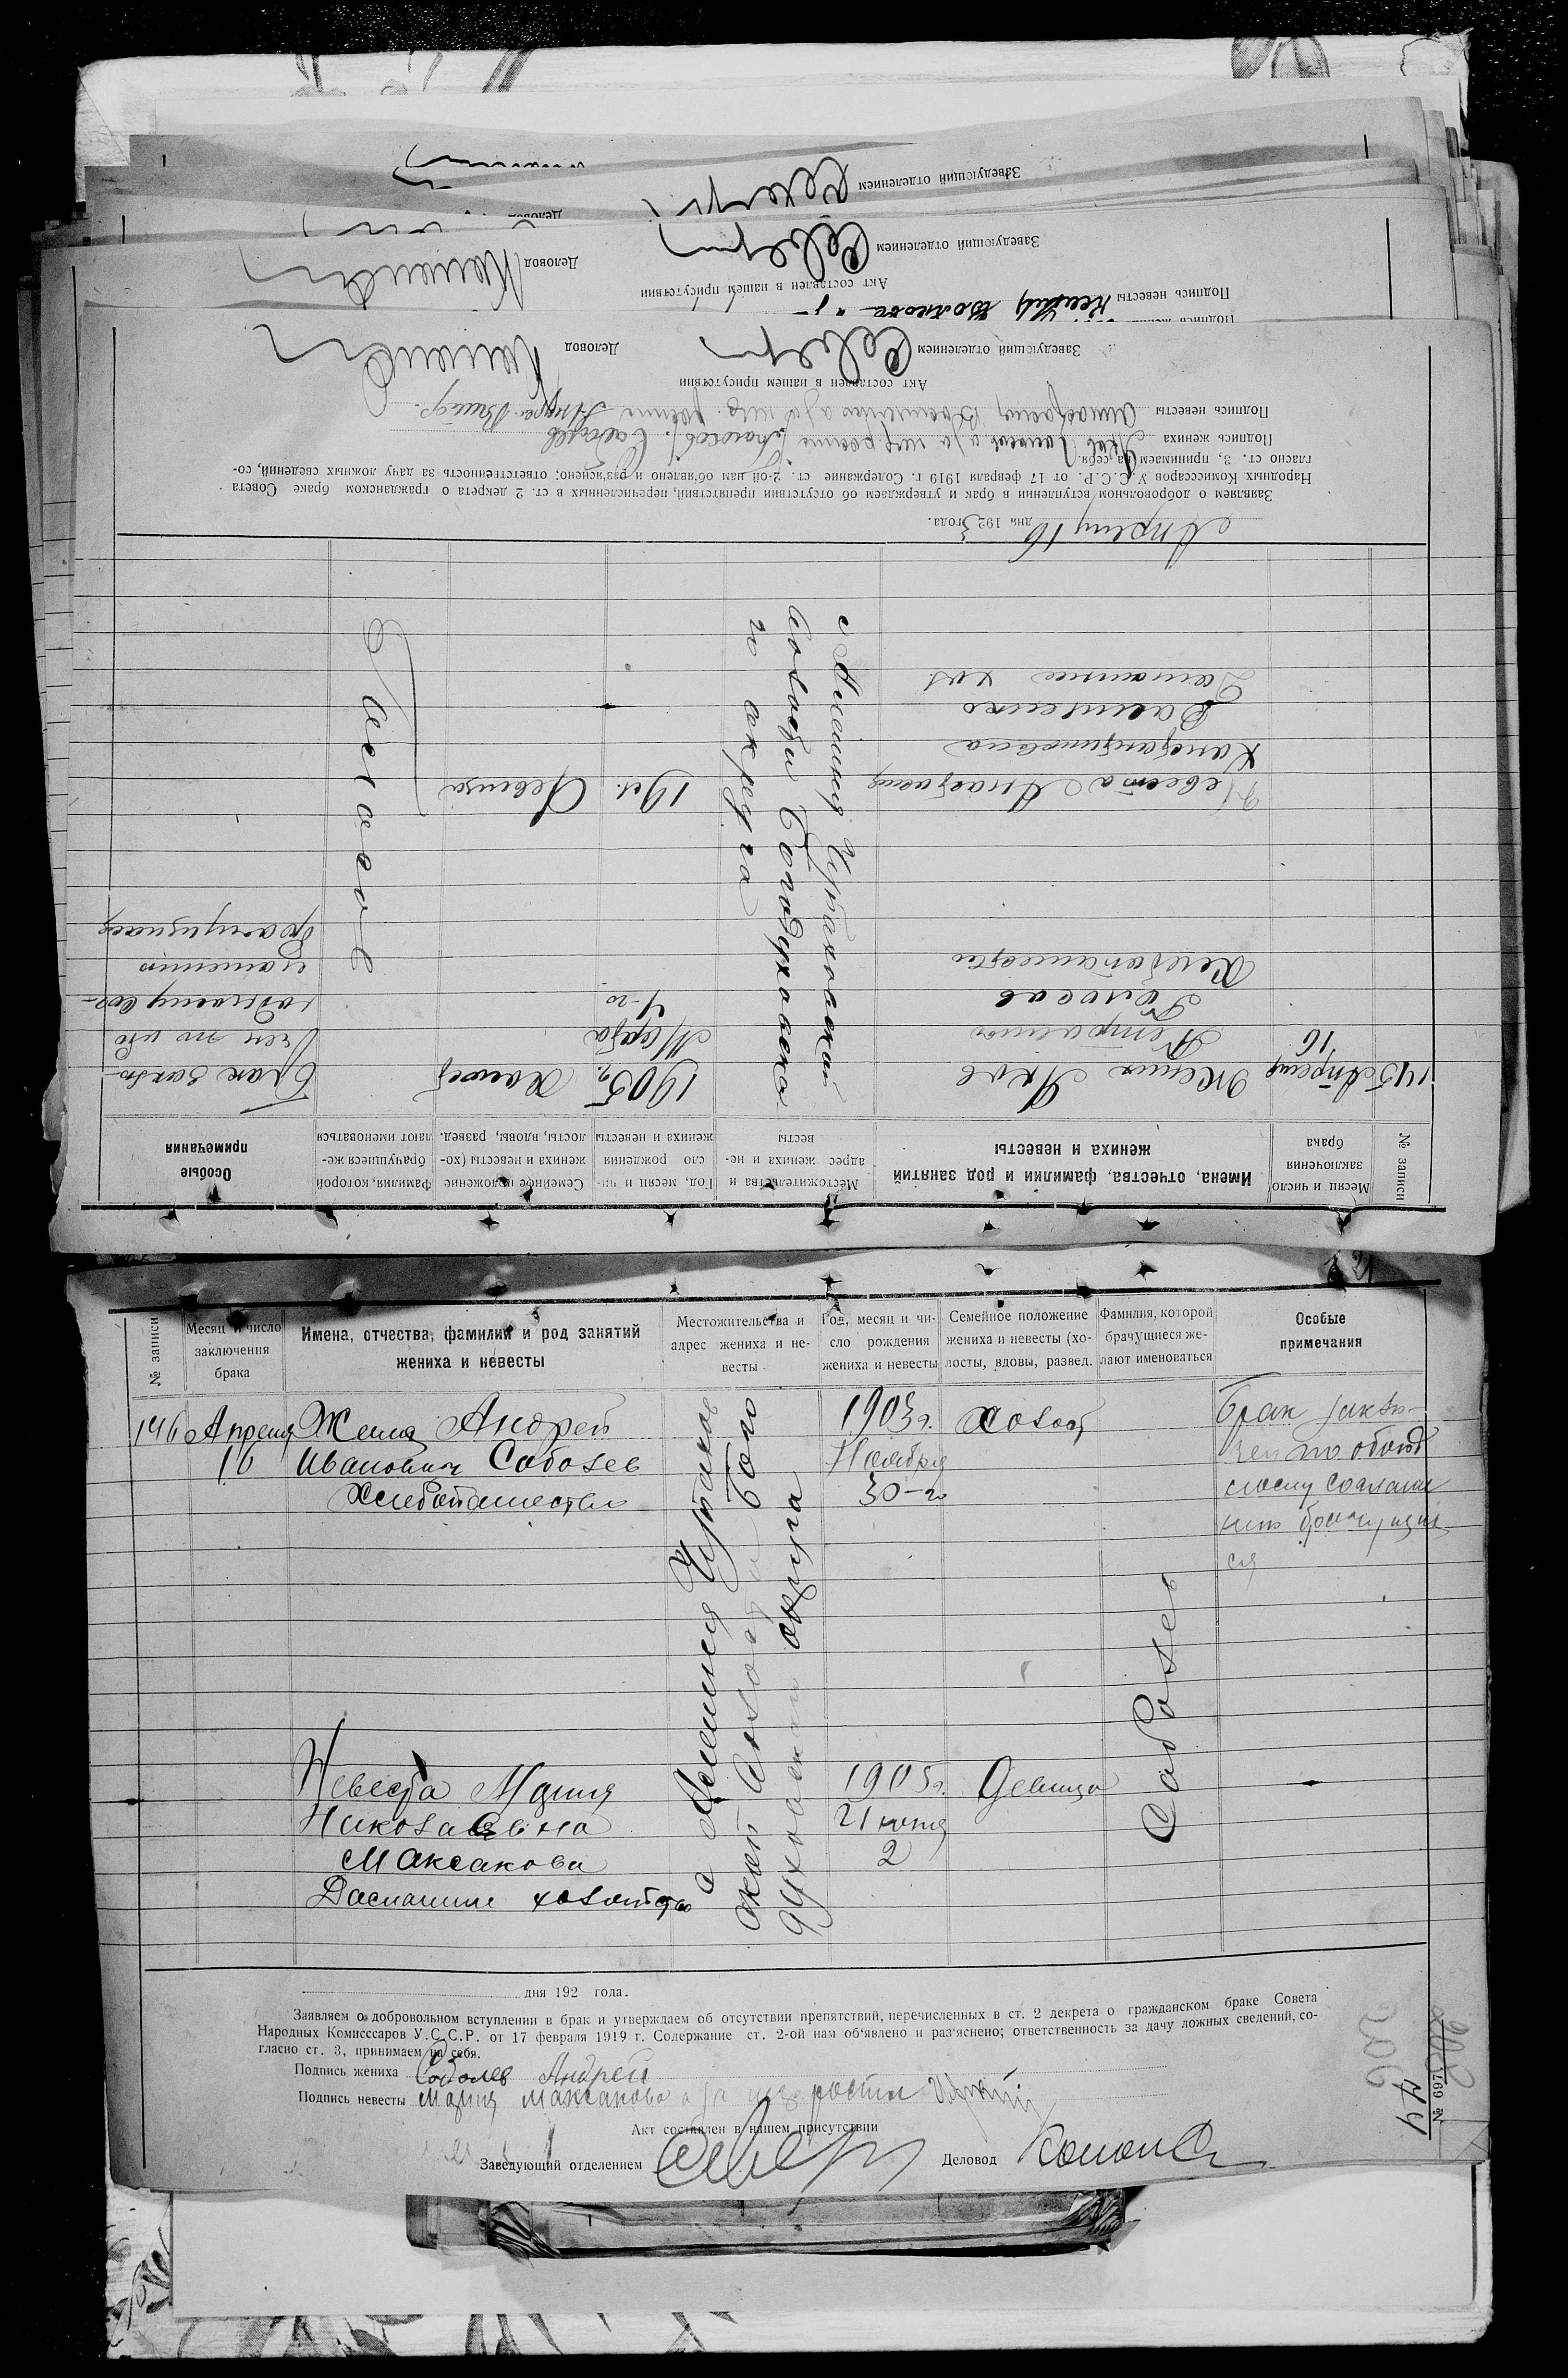 Заведующий отделением
Деловод
Подпись невесты
Акт составлен в нашем присутствии
Заведующий отделением
Деловод
№ записи
Месяц и число заключения брака
Имена, отчества, фамилии и род занятий жениха и невесты
Местожительства и адрес жениха и невесты
Год, месяц и число рождения жениха и невесты
Семейное положение жениха и невесты (холосты, вдовы, развед.
Фамилия, которой брачущиеся желают именоваться
Особые примечания
145 Апреля Жених Яков 1905 г. Холост Брак заклю-
16 Петрович Марта чен по обо
Голосов 4-го юдному сог-
Хлебопашество лашению
брачущихся
с Алешня Чупаховской
волости Богодуховско
го округа
Голосов
Невеста Анастасия 19 л. Девица
Константиновна
Василенко
Домашнее хоз
Апреля 16 дня 1923 года.
Заявляем о добровольном вступлении в брак и утверждаем об отсутствии препятствий, перечисленных в ст. 2 декрета о гражданском браке Совета
Народных Комиссаров У.С.С.Р. от 17 февраля 1919 г. Содержание ст. 2-ой нам об'явлено и раз'яснено; ответственность за дачу ложных сведений, со-
гласно ст. 3, принимаем на себя.
Подпись жениха Яков Голосов а за неграмотн
Подпись невесты Анастасия Василенко а за неграмотн
Акт составлен в нашем присутствии
Заведующий отделением
Деловод
№ записи
Месяц и число
заключения
брака
Имена, отчества, фамилии и род занятий
жениха и невесты
Местожительства и
адрес жениха и не-
весты
Год, месяц и чи-
сло рождения
жениха и невесты
Семейное положение
жениха и невесты (хо-
лосты, вдовы, развед.
Фамилия, которой
брачущиеся же-
лают именоваться
Особые
примечания
146 Апреля Жених Андрей 1903 г. Холост Брак заклю-
16 Иванович Соболев Ноября чен по обоюд
Хлебопашество 30-го ному соглаше
нию брачущих
ся
с Алешня Чупахов
ской волости Бого
духовский округа
Соболев
Невеста Мария 1905 г. Девица
Николаевна 21 юня
Максакова 2
Домашнее хозяйство
дня 192 года.
Заявляем о добровольном вступлении в брак и утверждаем об отсутствии препятствий, перечисленных в ст. 2 декрета о гражданском браке Совета
Народных Комисссаров У.С.С.Р. от 17 февраля 1919 г. Содержание ст. 2-ой нам об'явлено и раз'яснено; ответственность за дачу ложных сведений, со-
гласно ст. 3, принимаем на себя.
Подпись жениха Соболев Андрей
Подпись невесты Мария Максакова а за
Акт составлен в нашем присутствии
Заведующий отделением
Деловод
206
№ 697